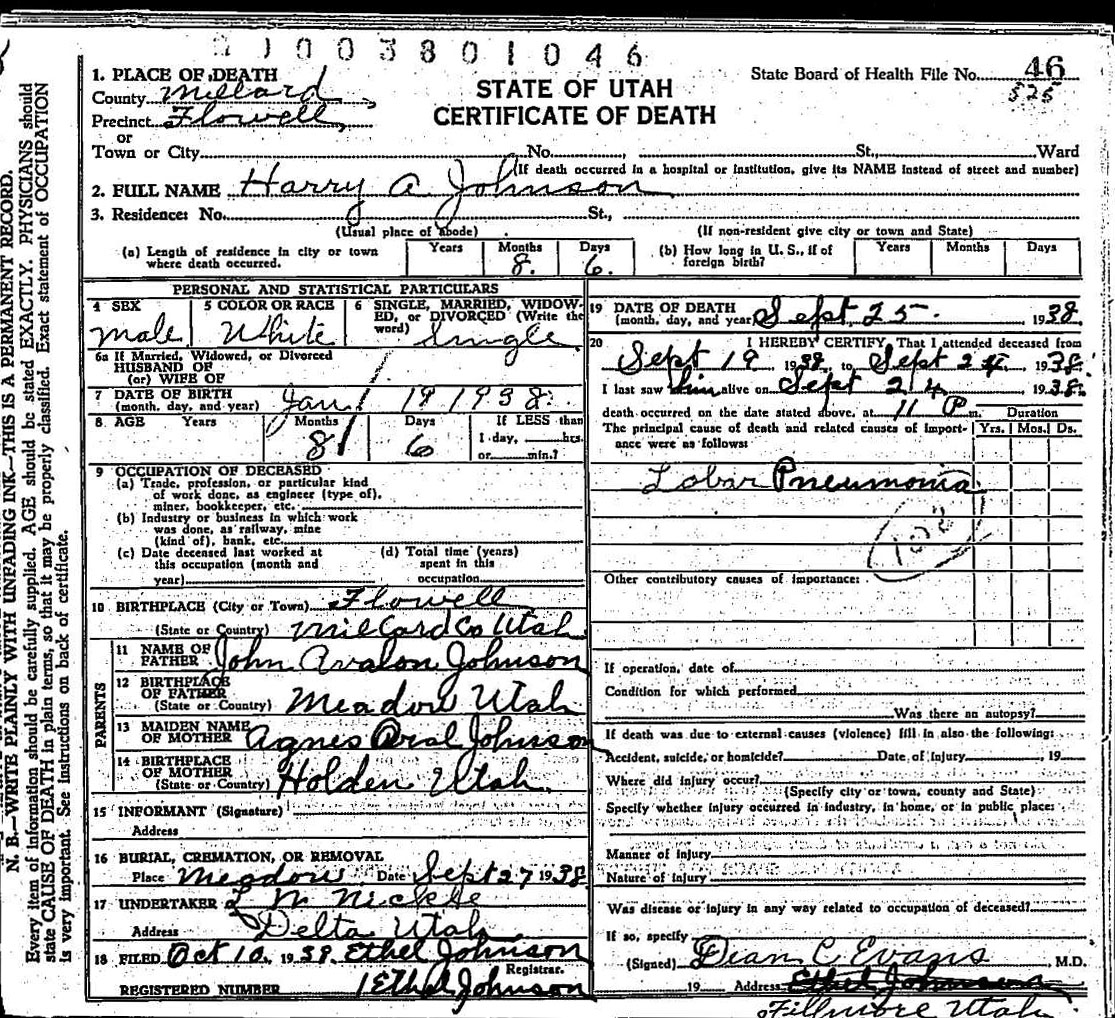 0 1 0 0 3 8 0 1 0 4 6
1. PLACE OF DEATH
County Millard
Precinct Flowell,
or
Town or City No. , St., Ward
STATE OF UTAH
CERTIFICATE OF DEATH
State Board of Health File No. 46
525
(If death occurred in a hospital or institution, give its NAME instead of street and number)
2. FULL NAME Harry A Johnson
3. Residence: No. St.,
(Usual place of abode) (If non-resident give city or town and State)
(a) Length of residence in city or town where death occurred. Years Months 8. Days 6.
(b) How long in U. S., if of foreign birth? Years Months Days
PERSONAL AND STATISTICAL PARTICULARS
4 SEX Male
5 COLOR OR RACE White
6 SINGLE, MARRIED, WIDOWED, OR DIVORCED (Write the word) Single
6a If Married, Widowed, or Divorced
HUSBAND OF
(or) WIFE OF
7 DATE OF BIRTH
(month, day, and year) Jan 19 1938.
8 AGE Years Months 8 Days 6 If LESS than
1 day, hrs.
or min.?
9 OCCUPATION OF DECEASED
(a) Trade, profession, or particular kind
of work done, as engineer (type of),
miner, bookkeeper, etc.
(b) Industry or business in which work
was done, as railway, mine
(kind of), bank, etc.
(c) Date deceased last worked at
this occupation (month and
year)
(d) Total time (years)
spent in this
occupation
10 BIRTHPLACE (City or Town) Flowell
(State or Country) Millard Co Utah
PARENTS
11 NAME OF
FATHER John Avalon Johnson
12 BIRTHPLACE
OF FATHER
(State or Country) Meadow Utah
13 MAIDEN NAME
OF MOTHER Agnes Oral Johnson
14 BIRTHPLACE
OF MOTHER
(State or Country) Holden Utah.
15 INFORMANT (Signature)
Address
16 BURIAL, CREMATION, OR REMOVAL
Place Meadow Date Sept 27 1938
17 UNDERTAKER L M Nickle
Address Delta Utah
18 FILED Oct 10, 1938. Ethel Johnson
Registrar.
REGISTERED NUMBER 1 Ethel Johnson
19 DATE OF DEATH
(month, day, and year) Sept 25. 1938.
20 I HEREBY CERTIFY, That I attended deceased from
Sept 19 1938, to Sept 24, 1938.
I last saw him alive on Sept 24. 1938.
death occurred on the date stated above, at 11 P m. Duration
The principal cause of death and related causes of importance were as follows: Yrs. Mos. Ds.
Lobar Pneumonia
108
Other contributory causes of importance:
If operation, date of
Condition for which performed
Was there an autopsy?
If death was due to external causes (violence) fill in also the following:
Accident, suicide, or homicide? Date of injury , 19
Where did injury occur?
(Specify city or town, county and State)
Specify whether injury occurred in industry, in home, or in public place:
Manner of injury
Nature of injury
Was disease or injury in any way related to occupation of deceased?
If so, specify
(Signed) Dean C Evans, M.D.
19 Address Ethel Johnson
Fillmore Utah
N. B.—WRITE PLAINLY WITH UNFADING INK—THIS IS A PERMANENT RECORD.
Every item of information should be carefully supplied. AGE should be stated EXACTLY. PHYSICIANS should
state CAUSE OF DEATH in plain terms, so that it may be properly classified. Exact statement of OCCUPATION
is very important. See instructions on back of certificate.